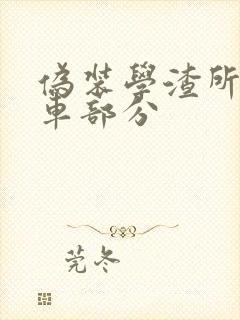 偽裝學渣所
車部分
莞冬